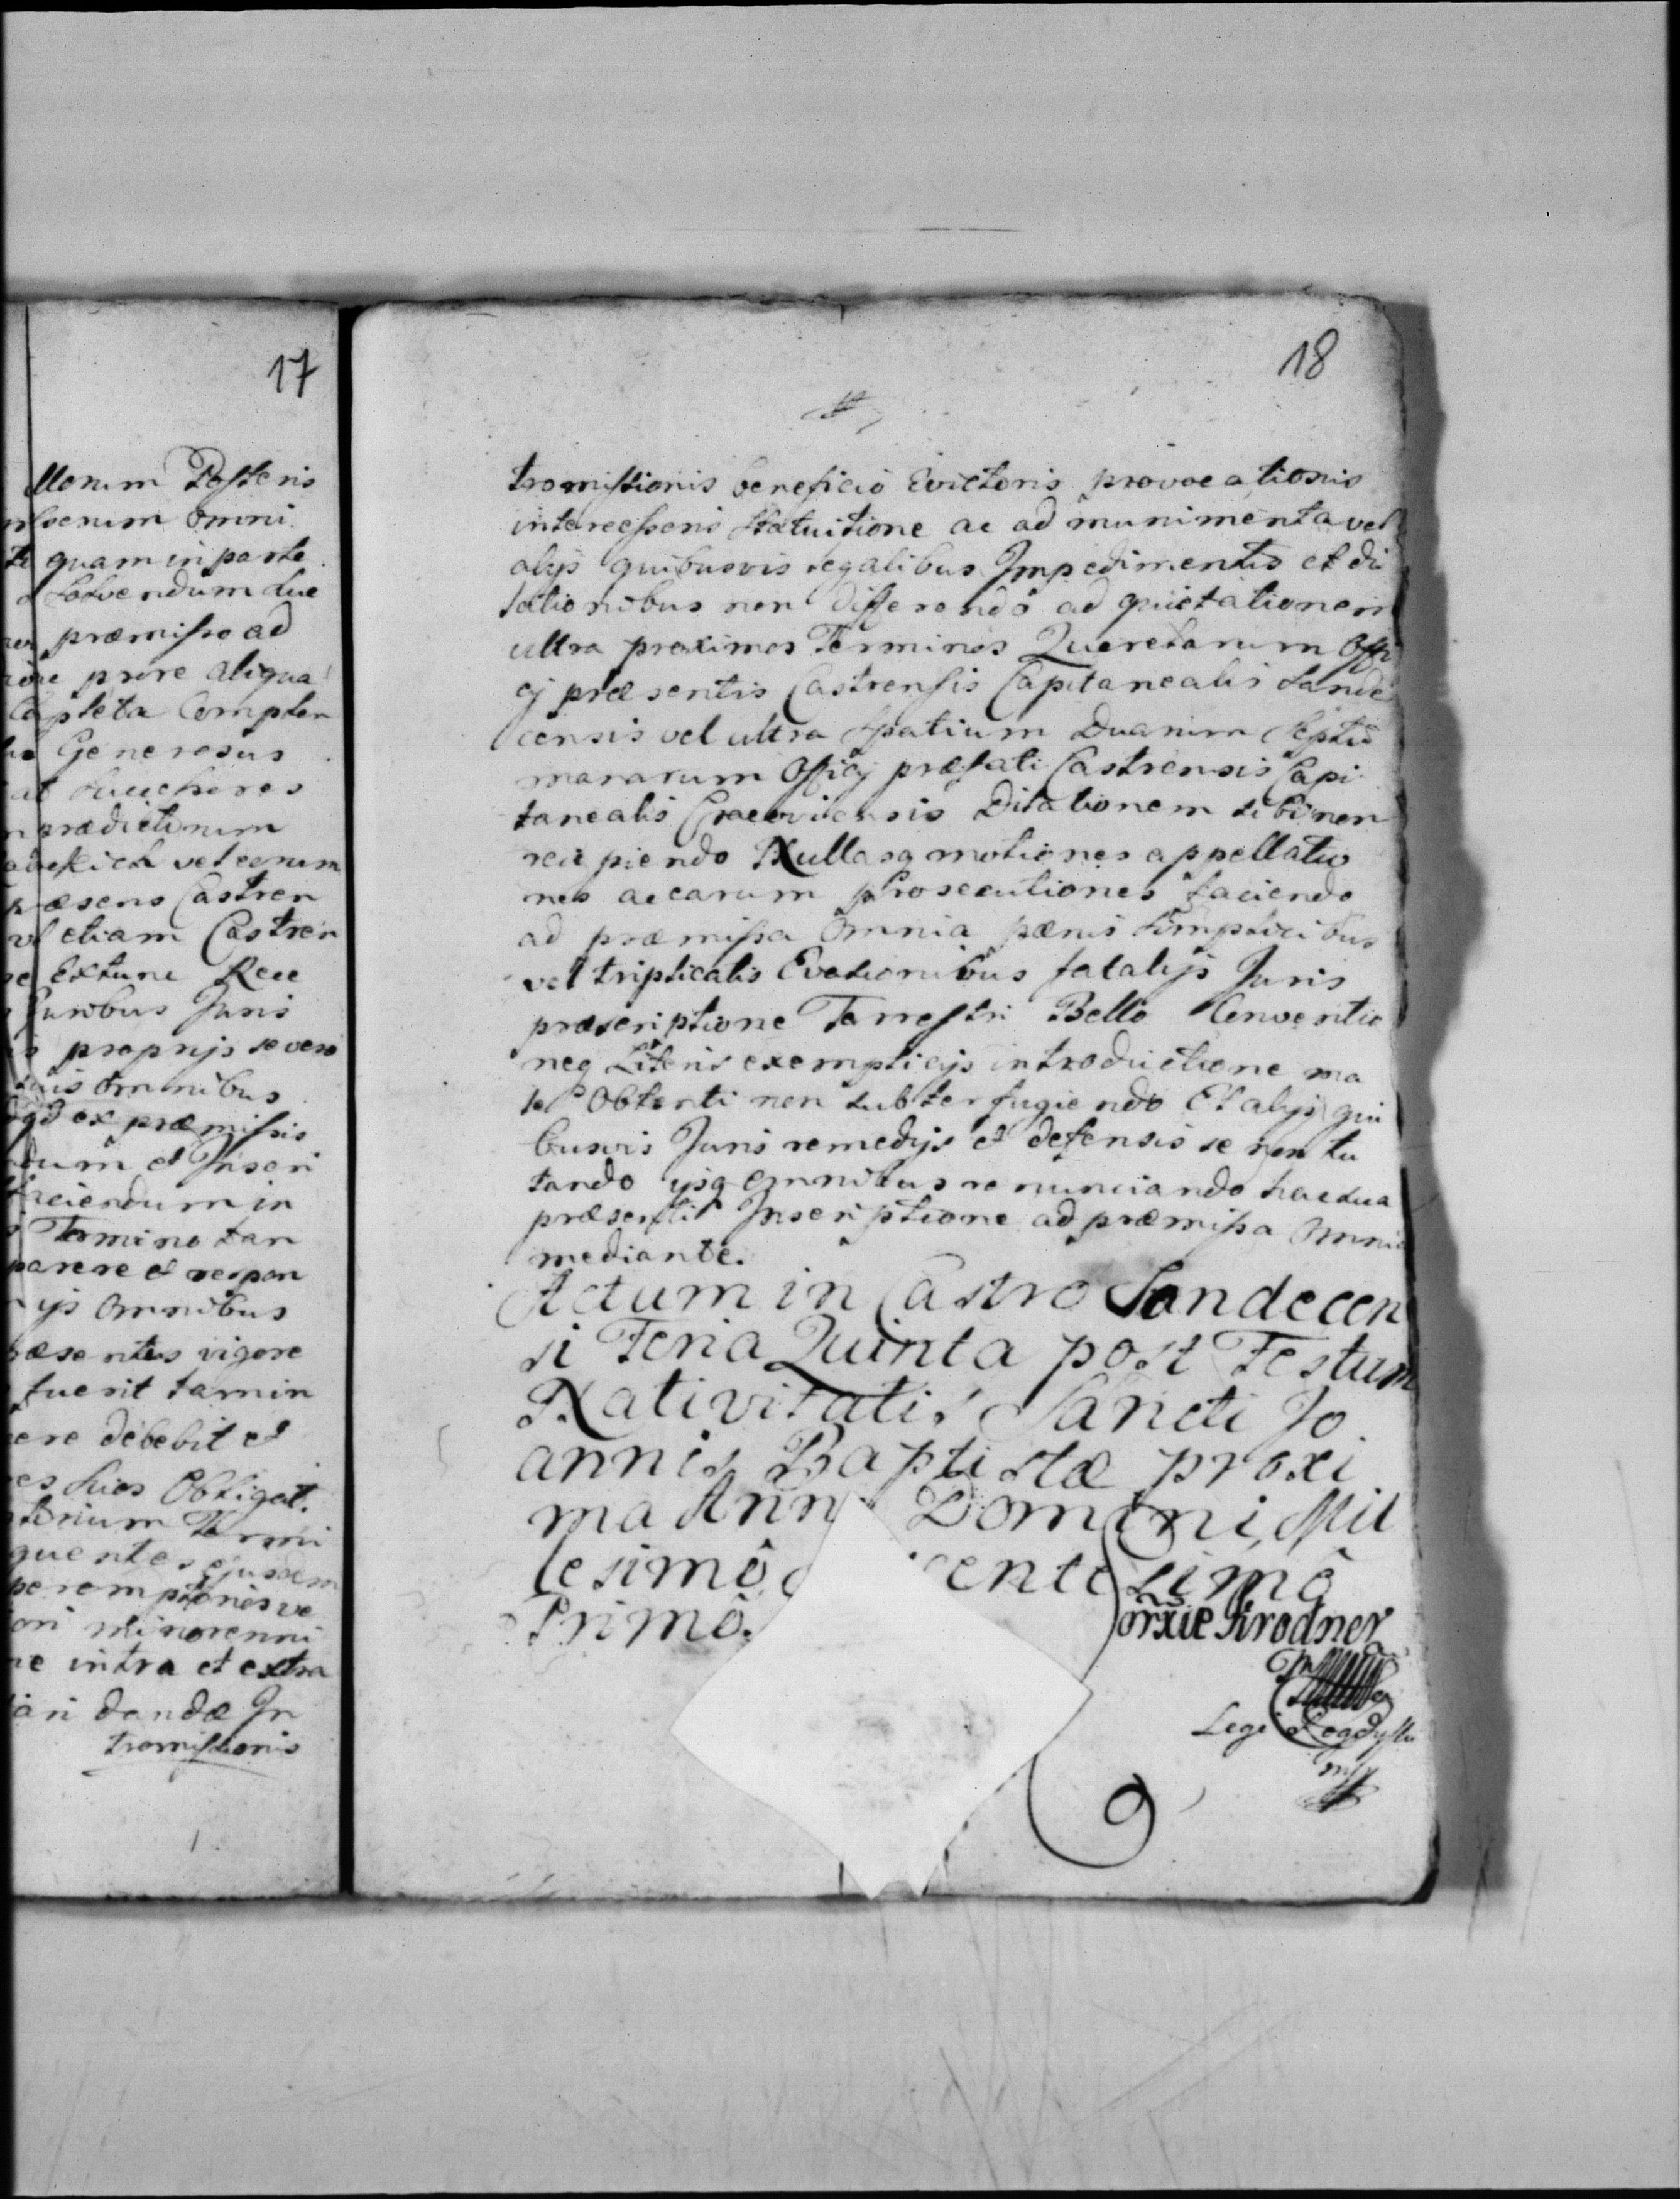 17
llorum Posteris
omni
quam in parte
Solvendum sue
præmisso ad
prore aliqua
Capleta Complen
Generosus
Succheres
prædictorum
vel eorum
præsens Castren
vel etiam Castren
Extunc Rece
Juribus Juris
proprijs se vero
omnibus
ex præmissis
dum et Inscri
faciendum in
Termino tan
parere et respon
ijs omnibus
præsentis vigore
fuerit tamin
debebit et
suos Obligat.
Termi
quentes ejusdem
peremptoriesve
minorenni
intra et extra
dandæ In
tromissionis
18
tromissionis beneficio Evictoris provocationis
intercessoris statuitione ac ad munimenta vel
alijs quibusvis legalibus Impedimentis et di
lationibus non differendo ad quietationem
ultra proximos Terminos Querelarum Offi
cij præsentis Castrensis Capitanealis Sande
censis vel ultra spatium Duarum Septi
manarum Officij præfati Castrensis Capi
tanealis Cracoviensis Dilationem sibi non
recipiendo Nullasq motiones appellatio
nes ac earum prosecutiones faciendo
ad præmissa Omnia pænis simplicibus
vel triplicatis Evasionibus fatalijs Juris
præscriptione Terrestri Bello Conventio
neq Literis exempticijs introductione ma
le Obtenti non subterfugiendo Et alijs qui
busvis Juris remedijs et defensis se non tu
tando ijsq omnibus renunciando hac sua
præsenti Inscriptione ad præmissa Omnia
mediante.
Actum in Castro Sandecen
si Feria Quinta post Festum
Nativitatis Sancti Jo
annis Baptistæ proxi
ma Ann Domini Mil
lesimô centesimô
Primô.
Legi